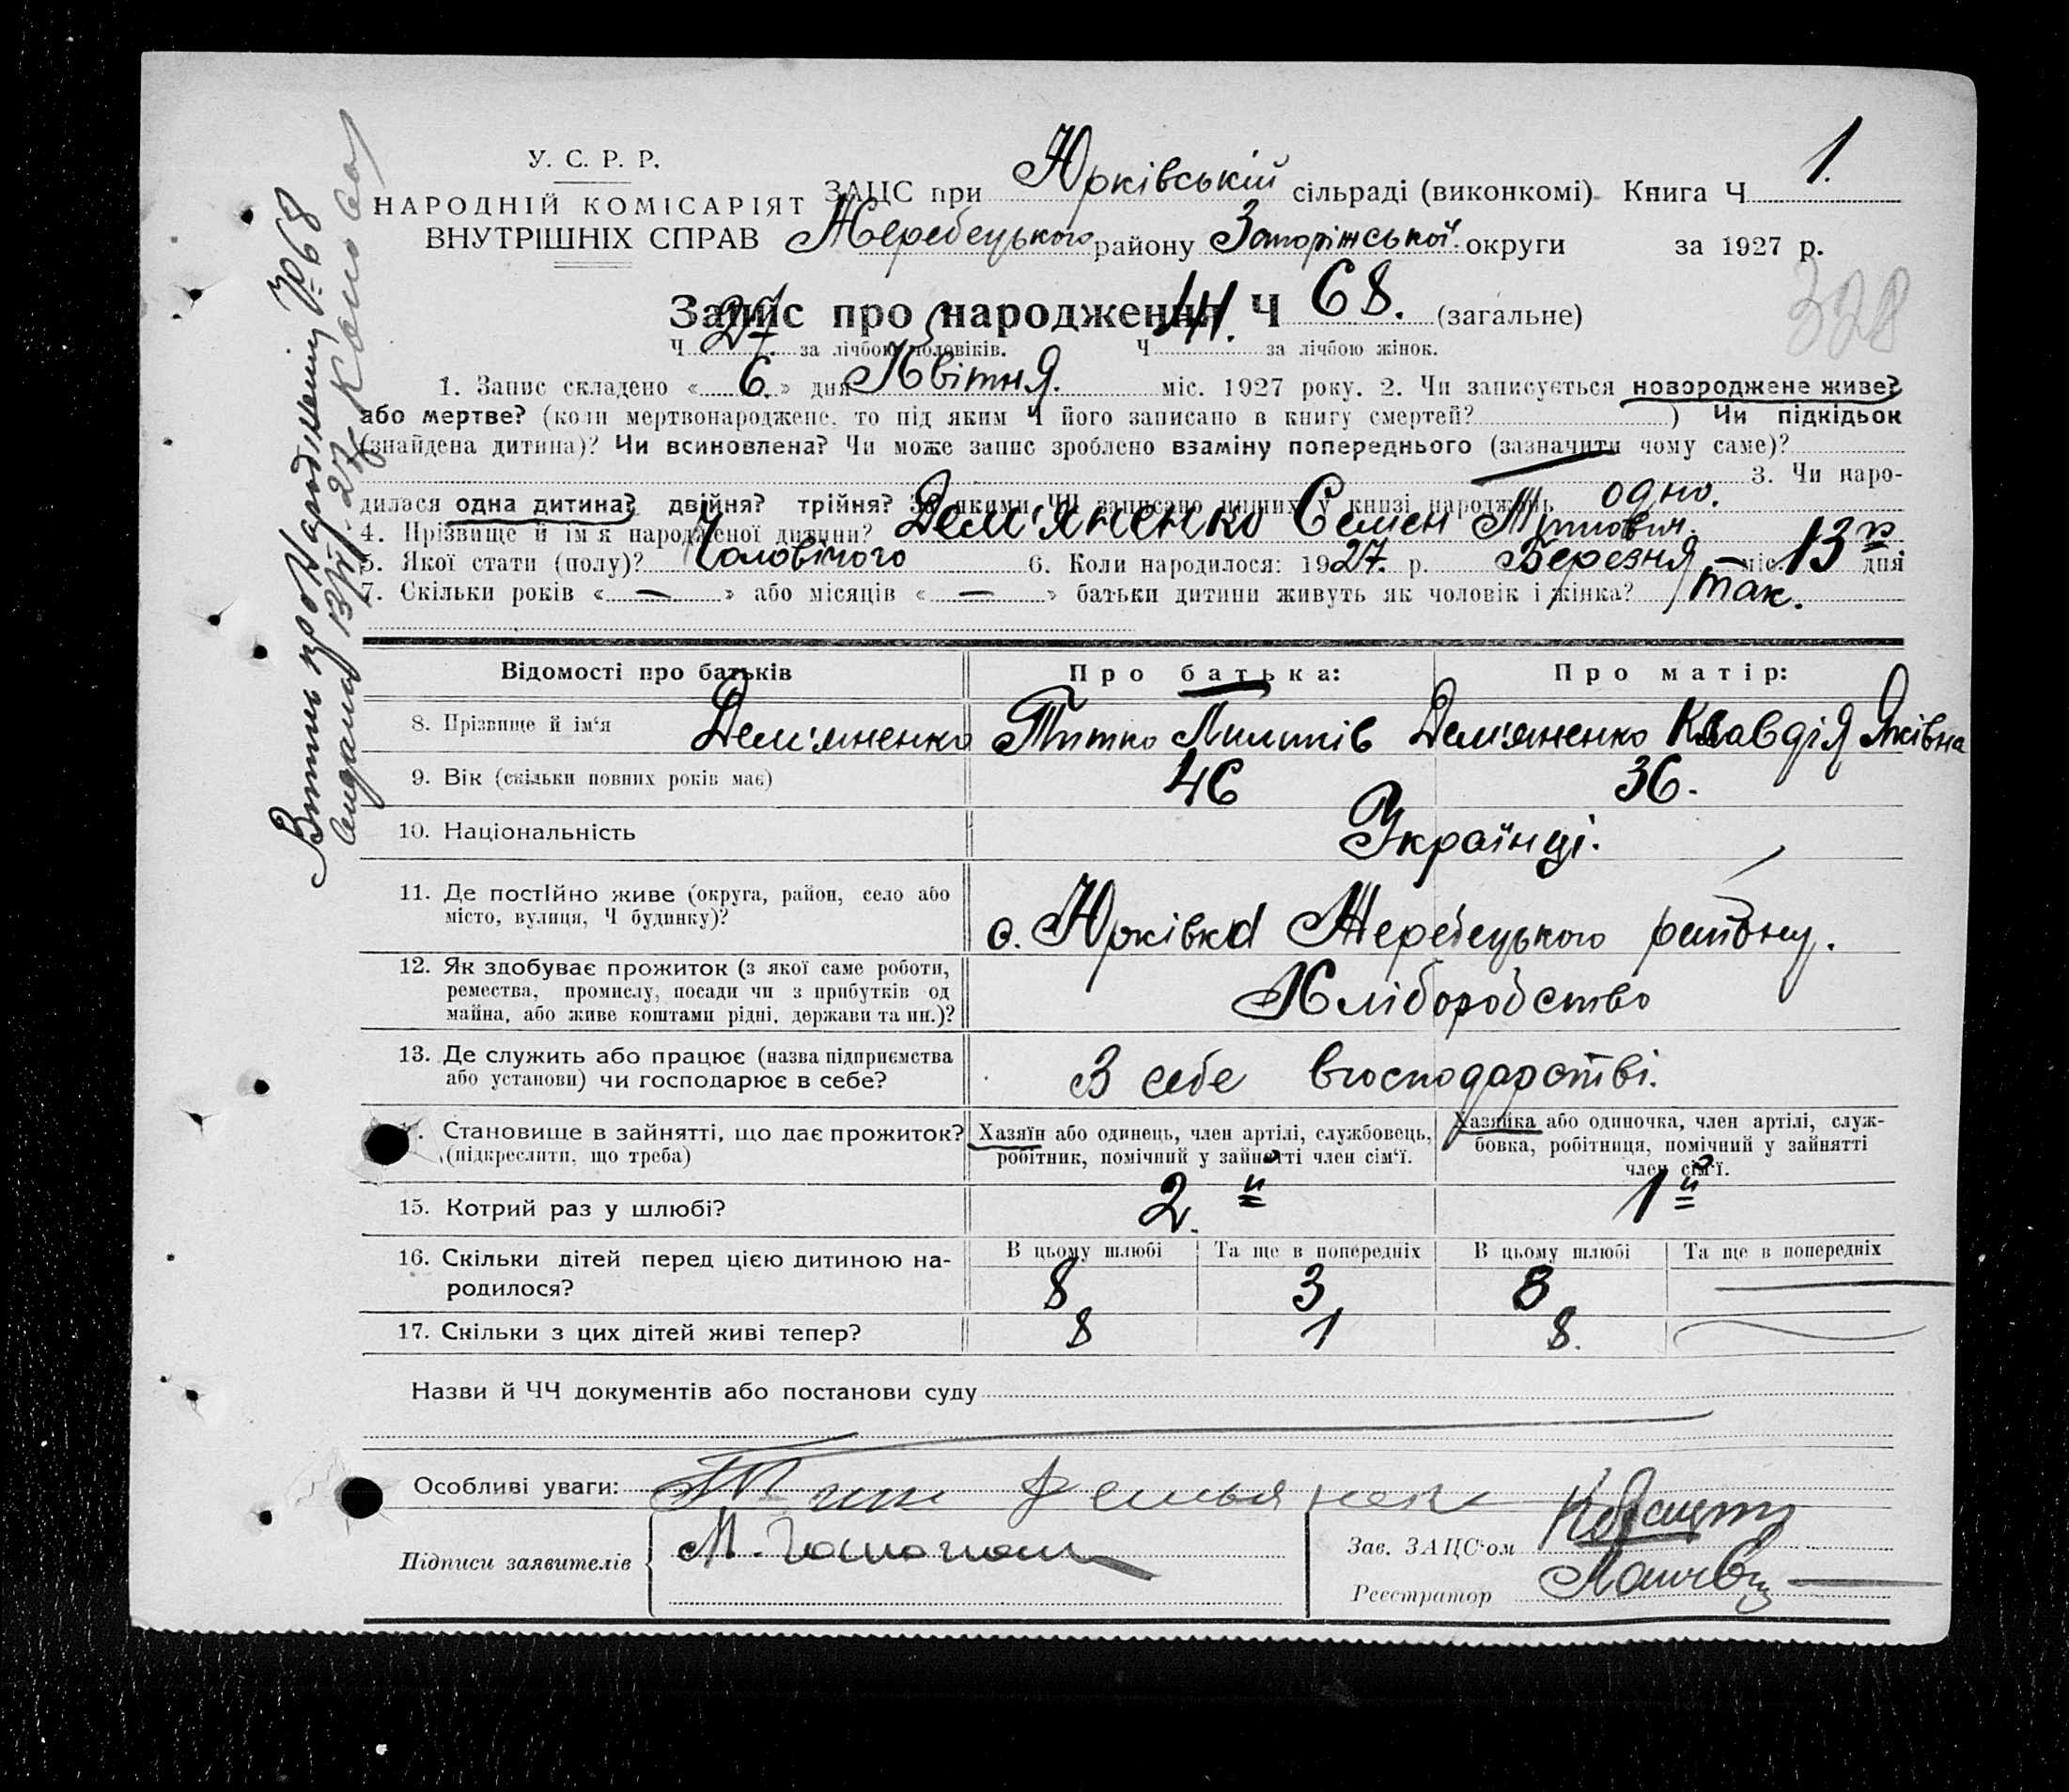 У. С. Р. Р.
НАРОДНІЙ КОМІСАРІЯТ
ВНУТРІШНІХ СПРАВ
ЗАЦС при Юрківській сільраді (виконкомі). Книга Ч 1.
Жеребецького району Запоріжської округи за 1927 р.
328
Запис про народження Ч 68. (загальне)
Ч 27. за лічбою чоловіків. Ч 41. за лічбою жінок.
1. Запис складено « 6. » дня Квітня. міс. 1927 року. 2. Чи записується новороджене живе?
або мертве? (коли мертвонароджене, то під яким Ч його записано в книгу смертей? ) Чи підкідьок
(знайдена дитина)? Чи всиновлена? Чи може запис зроблено взаміну попереднього (зазначити чому саме)?
3. Чи наро-
дилася одна дитина? двійня? трійня? За якими ЧЧ записано инших у книзі народжень одно.
4. Прізвище й ім'я народженої дитини? Дем'яненко Семен Титович.
5. Якої стати (полу)? Чоловічого 6. Коли народилося: 1927. р. Березня міс. 13го дня
7. Скільки років « — » або місяців « — » батьки дитини живуть як чоловік і жінка? так.
Відомості про батьків Про батька: Про матір:
8. Прізвище й ім'я Дем'яненко Титко Дем'яненко Клавдія Яківна
9. Вік (скільки повних років має) 46 36.
10. Національність Українці.
11. Де постійно живе (округа, район, село або
місто, вулиця, Ч будинку)?
с. Юрківка Жеребецького району.
12. Як здобуває прожиток (з якої саме роботи,
ремества, промислу, посади чи з прибутків од
майна, або живе коштами рідні, держави та ин.)?
Хліборобство
13. Де служить або працює (назва підприємства
або установи) чи господарює в себе?
В себе вгосподарстві.
14. Становище в зайнятті, що дає прожиток?
(підкреслити, що треба)
Хазяїн або одинець, член артілі, службовець,
робітник, помічний у зайнятті член сім'ї.
Хазяйка або одиночка, член артілі, служ-
бовка, робітниця, помічний у зайнятті
член сім'ї.
15. Котрий раз у шлюбі? 2.й 1й
16. Скільки дітей перед цією дитиною на-
родилося?
В цьому шлюбі Та ще в попередніх В цьому шлюбі Та ще в попередніх
8 3 8 —
17. Скільки з цих дітей живі тепер? 8 1 8.
Назви й ЧЧ документів або постанови суду
Особливі уваги:
Підписи заявителів
Зав. ЗАЦС'ом
Реєстратор